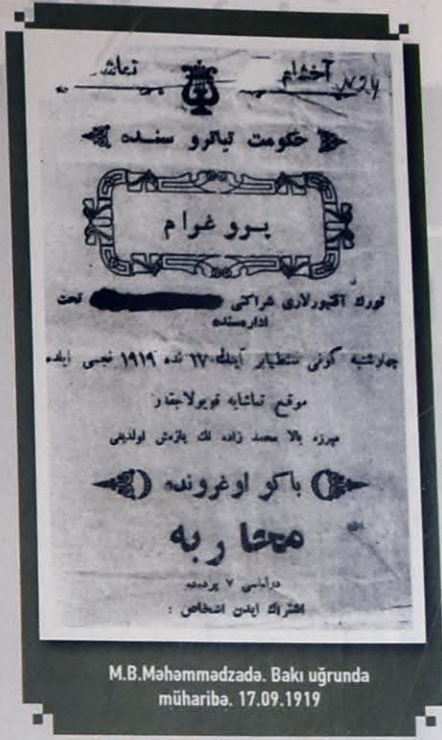 آخشام تماشا № 24
حکومت تیاترو سنده
پروغرام
تورک آکتیورلاری شراکتی تحت
اداره‌سنده
چهارشنبه کونی سنطیابر آینڭ ١٧ نده ١٩١٩ نجی ایلده
موقع تماشایه قویولاجقدر
میرزه بالا محمد زاده نڭ یازمش اولدیغی
باکو اوغرونده
محاربه
درامایی ٧ پرده‌ده
اشتراك ایدن اشخاص :
M.B.Məhəmmədzadə. Bakı uğrunda
müharibə. 17.09.1919